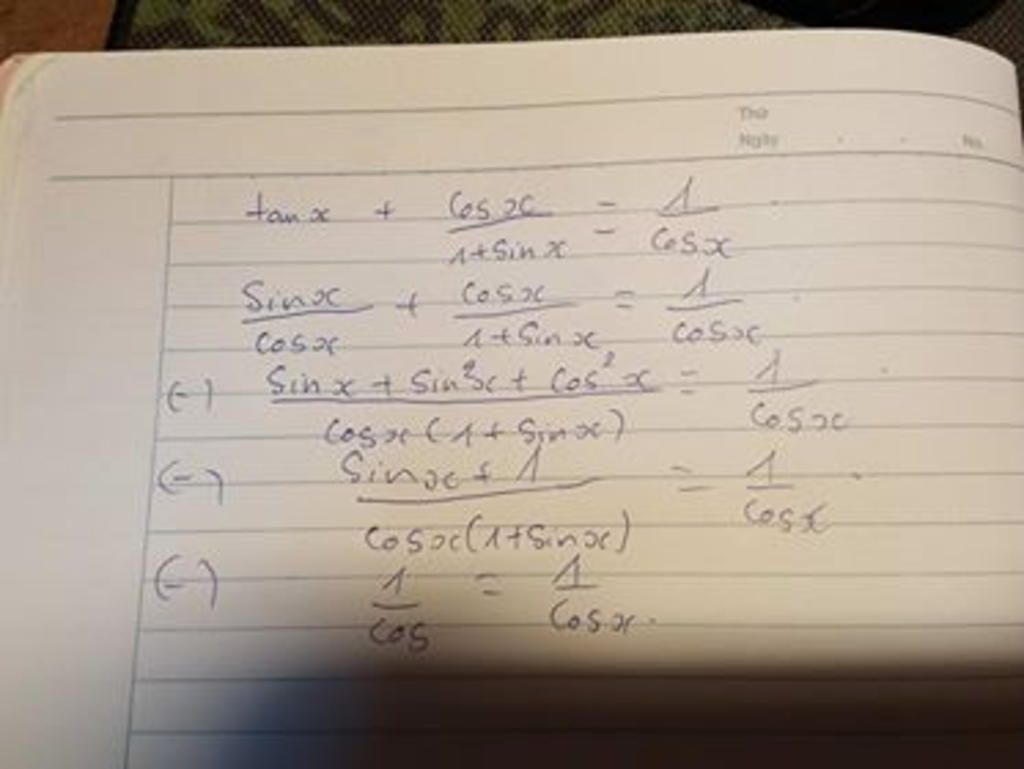 Thứ
Ngày . . No.
tan x + cos x / 1+sin x = 1 / cos x .
sin x / cos x + cos x / 1+sin x = 1 / cos x .
(-) sin x + sin²x + cos²x / cos x (1 + sin x) = 1 / cos x .
(-) sin x + 1 / cos x (1+sin x) = 1 / cos x .
(-) 1 / cos = 1 / cos x .